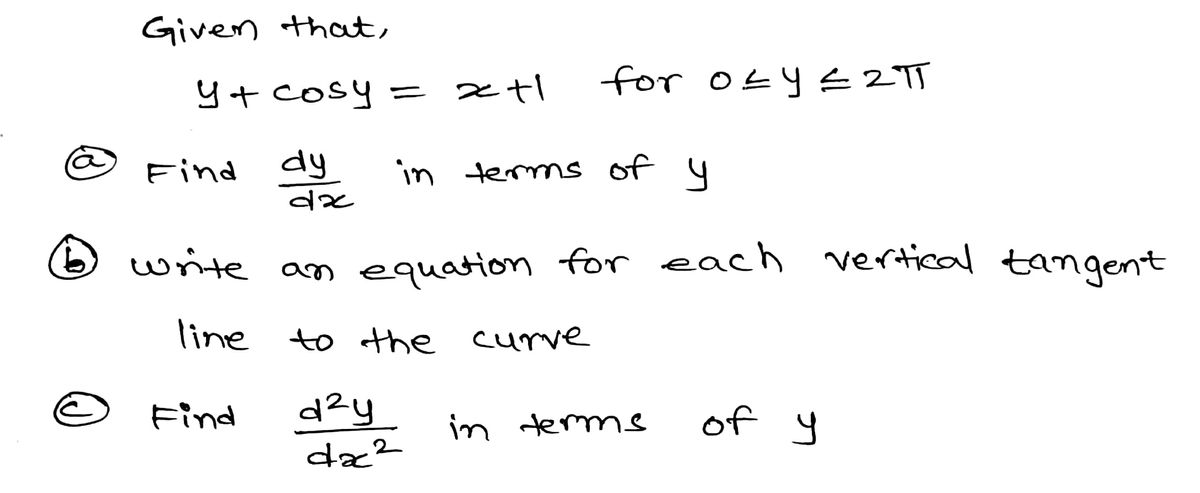 Given that,
y + cosy = x+1 for 0 ≤ y ≤ 2π
ⓐ Find dy/dx in terms of y
ⓑ write an equation for each vertical tangent
line to the curve
ⓒ Find d²y/dx² in terms of y